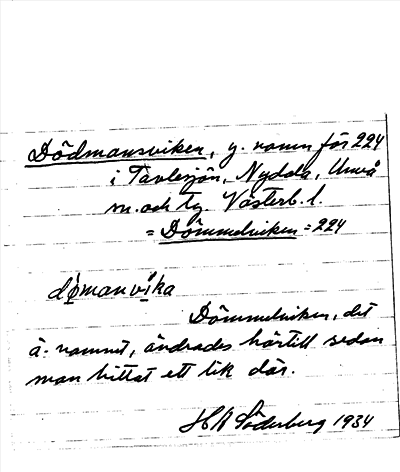 Dödmansviken, y. namn för 224
i Tavlesjön, Nydala, Umeå
sn. och tg Västerb. l.
= Dömmelviken = 224
dömanvika
Dömmelviken, det
ä. namnet, ändrades härtill sedan
man hittat ett lik där.
HA Söderberg 1934